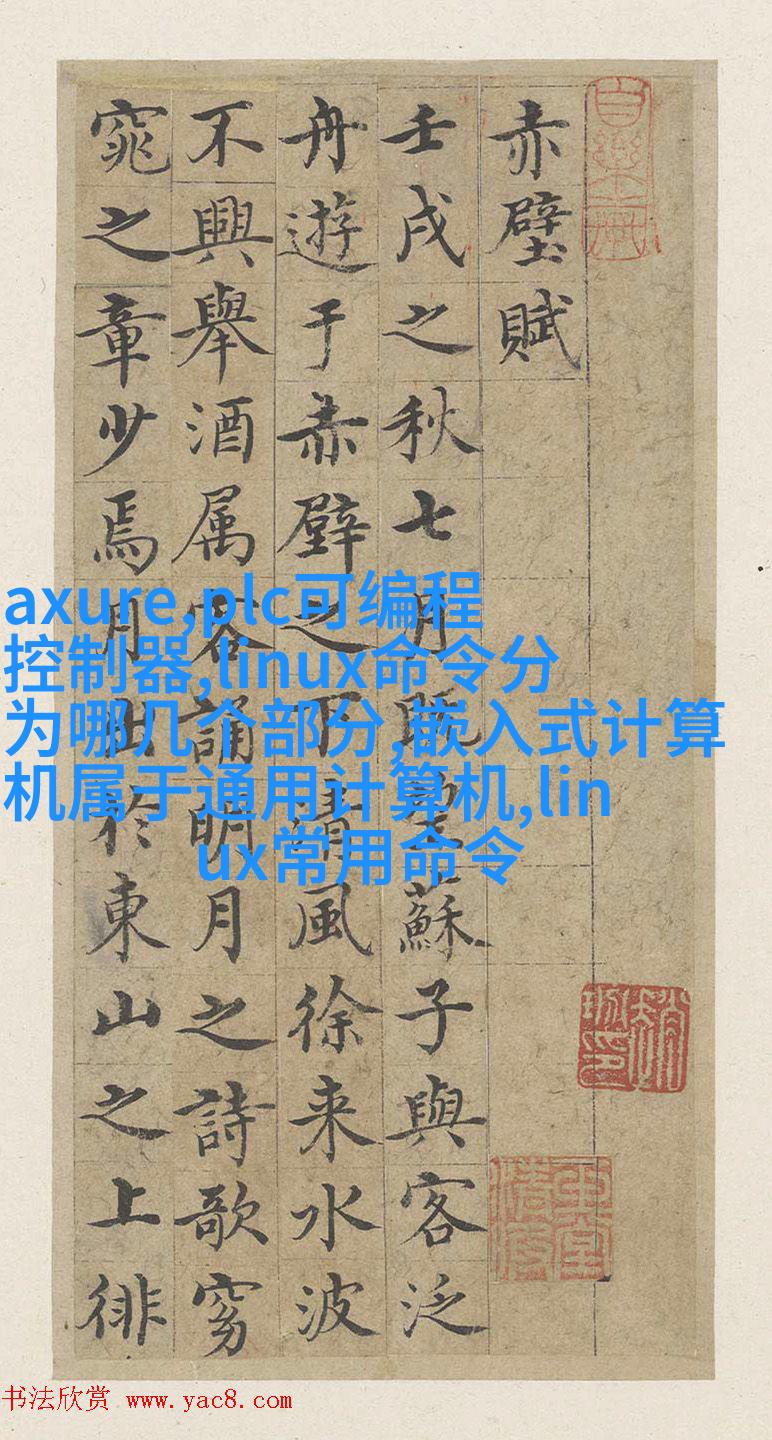 赤壁賦
壬戌之秋七月既望蘇子與客泛
舟遊于赤壁之下清風徐来水波
不興舉酒属客誦明月之詩歌窈
窕之章少焉月出於東山之上徘
axure,plc可编程
控制器,linux命令分
为哪几个部分,嵌入式计算
机属于通用计算机,lin
ux常用命令
书法欣赏 www.yac8.com